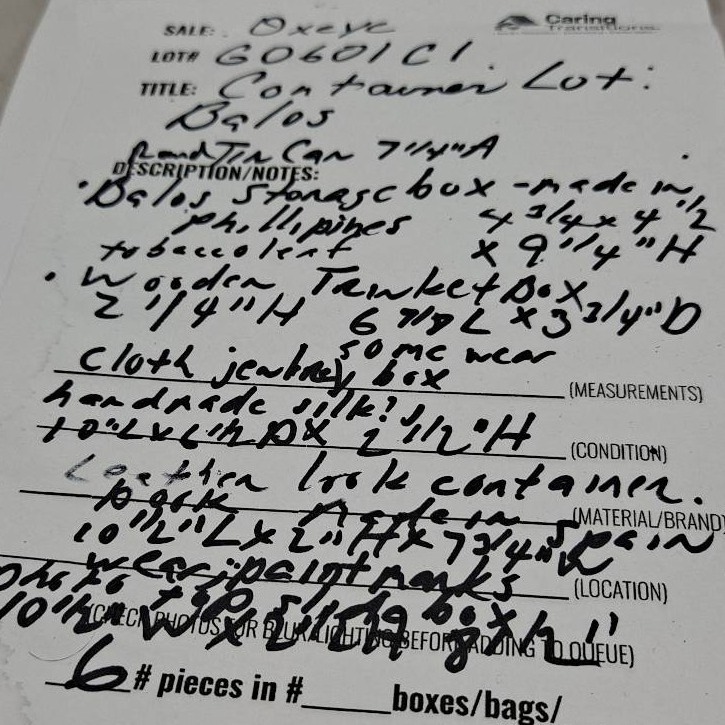 Caring
Transitions
SALE: Oxeye
LOT# G0601C1
TITLE: Container Lot:
Balos
Round Tin Can 7 1/4" H
DESCRIPTION/NOTES:
• Balos Storage box - made in
Phillipines 4 3/4 x 4 1/2
tobacco leaf x 9 1/4" H
• Wooden Trinket Box
2 1/4" H 6 7/8 L x 3 3/4" D
some wear
cloth jewelry box
(MEASUREMENTS)
handmade silk?
10" L x 6 1/2 D x 2 1/2" H
(CONDITION)
Leather look container.
book made in Spain
(MATERIAL/BRAND)
10 1/2" L x 2" H x 7 3/4" W
wear, paint marks
(LOCATION)
box
10 1/2" W x
(CHECK PHOTOS FOR BLUR/LIGHTING BEFORE ADDING TO QUEUE)
6 # pieces in # boxes/bags/